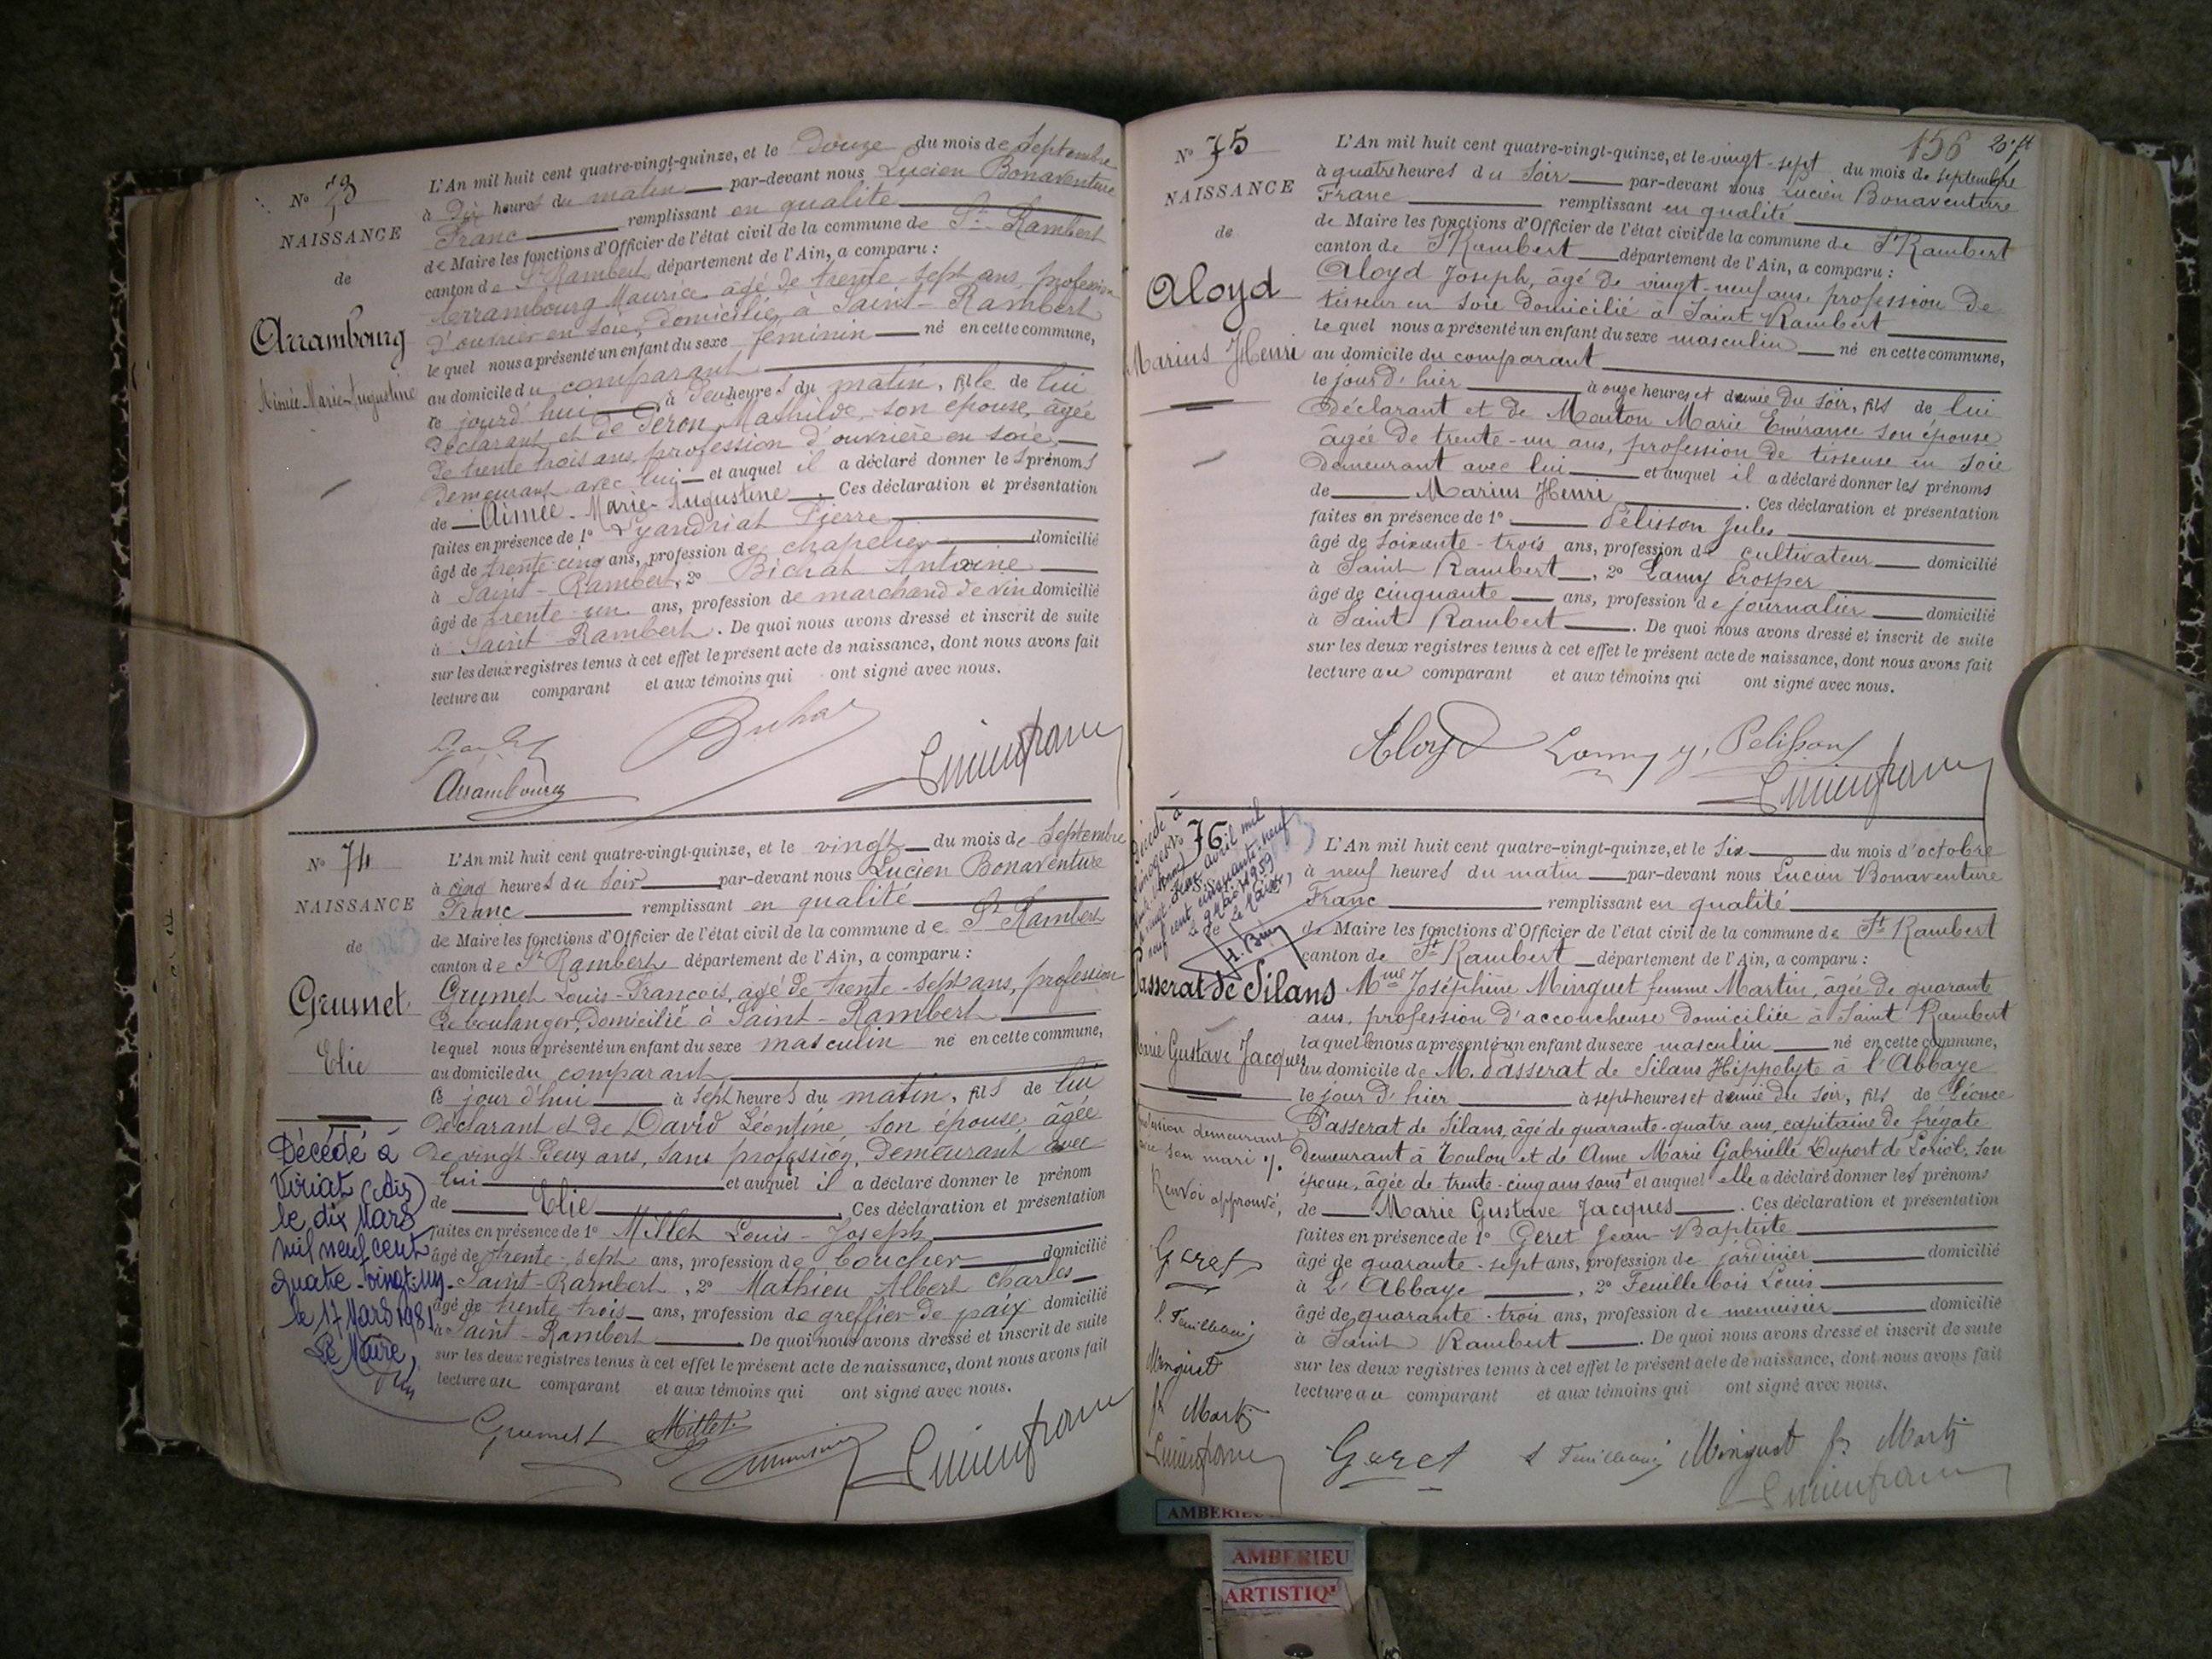 N° 73
NAISSANCE
de
Arrambourg
Aimée-Marie-Augustine
L'An mil huit cent quatre-vingt-quinze, et le Douze du mois de Septembre
à Dix heures du matin par-devant nous Lucien Bonaventure
Franc remplissant en qualité
de Maire les fonctions d'Officier de l'état civil de la commune de St Rambert
canton de St Rambert département de l'Ain, a comparu :
Arrambourg Maurice âgé de trente-sept ans, profession
d'ouvrier en soie, domicilié à Saint-Rambert
lequel nous a présenté un enfant du sexe féminin né en cette commune,
au domicile du comparant
ce jourd'hui à deux heures du matin, fille de lui
Déclarant et de Péron Mathilde, son épouse, âgée
de trente trois ans, profession d'ouvrière en soie,
demeurant avec lui et auquel il a déclaré donner les prénoms
de Aimée-Marie-Augustine Ces déclaration et présentation
faites en présence de 1° Pierre
âgé de trente-cinq ans, profession de chapelier domicilié
à Saint-Rambert, 2° Bichat Antoine
âgé de trente-un ans, profession de marchand de vin domicilié
à Saint Rambert. De quoi nous avons dressé et inscrit de suite
sur les deux registres tenus à cet effet le présent acte de naissance, dont nous avons fait
lecture au comparant et aux témoins qui ont signé avec nous.
Arrambourg
Lucien franc
N° 74
NAISSANCE
de
Grumet
Elie
Décédé à
Viriat (Ain)
le dix Mars
mil neuf cent
quatre-vingt-un.
le 17 Mars 1981
Le Maire,
L'An mil huit cent quatre-vingt-quinze, et le vingt du mois de Septembre
à cinq heures du soir par-devant nous Lucien Bonaventure
Franc remplissant en qualité
de Maire les fonctions d'Officier de l'état civil de la commune de St Rambert
canton de St Rambert département de l'Ain, a comparu :
Grumet Louis-François, agé de trente-sept ans, profession
de boulanger, Domicilié à Saint-Rambert
lequel nous a présenté un enfant du sexe masculin né en cette commune,
au domicile du comparant
ce jour d'hui à sept heures du matin, fils de lui
Déclarant et de David Léontine, son épouse, âgée
de vingt deux ans, sans profession, demeurant avec
lui et auquel il a déclaré donner le prénom
de Elie Ces déclaration et présentation
faites en présence de 1° Millet Louis-Joseph
âgé de trente-sept ans, profession de boucher domicilié
Saint-Rambert, 2° Mathieu Albert Charles
âgé de trente trois ans, profession de greffier de paix domicilié
à Saint-Rambert De quoi nous avons dressé et inscrit de suite
sur les deux registres tenus à cet effet le présent acte de naissance, dont nous avons fait
lecture au comparant et aux témoins qui ont signé avec nous.
Grumet Millet
Lucien franc
156
N° 75
NAISSANCE
de
Aloyd
Marius Henri
L'An mil huit cent quatre-vingt-quinze, et le vingt-sept du mois de septembre
à quatre heures du soir par-devant nous Lucien Bonaventure
Franc remplissant en qualité
de Maire les fonctions d'Officier de l'état civil de la commune de St Rambert
canton de St Rambert département de l'Ain, a comparu :
Aloyd Joseph, âgé de vingt-neuf ans, profession de
tisseur en soie domicilié à Saint Rambert
lequel nous a présenté un enfant du sexe masculin né en cette commune,
au domicile du comparant
le jour d'hier à onze heures et demie du soir, fils de lui
Déclarant et de Mouton Marie Emérance son épouse
âgée de trente-un ans, profession de tisseuse en soie
demeurant avec lui et auquel il a déclaré donner les prénoms
de Marius Henri. Ces déclaration et présentation
faites en présence de 1° Pélisson Jules
âgé de soixante-trois ans, profession de cultivateur domicilié
à Saint Rambert, 2° Lamy Prosper
âgé de cinquante ans, profession de journalier domicilié
à Saint Rambert. De quoi nous avons dressé et inscrit de suite
sur les deux registres tenus à cet effet le présent acte de naissance, dont nous avons fait
lecture au comparant et aux témoins qui ont signé avec nous.
Aloyd Lamy Pelisson
Lucien franc
Décédé à
Limoges
avril mil
neuf cent cinquante-neuf
Le 9 Mai 1959
Le Maire,
76
Passerat de Silans
Marie Gustave Jacques
L'An mil huit cent quatre-vingt-quinze, et le six du mois d'octobre
à neuf heures du matin par-devant nous Lucien Bonaventure
Franc remplissant en qualité
de Maire les fonctions d'Officier de l'état civil de la commune de St Rambert
canton de St Rambert département de l'Ain, a comparu :
Mme Joséphine Minguet femme Martin, âgée de quarante
ans, profession d'accoucheuse domiciliée à Saint Rambert
laquelle nous a présenté un enfant du sexe masculin né en cette commune,
au domicile de M. Passerat de Silans Hippolyte à l'Abbaye
le jour d'hier à sept heures et demie du soir, fils de Léonce
Passerat de Silans, âgé de quarante-quatre ans, capitaine de frégate
demeurant à Toulon et de Anne Marie Gabrielle Duport de Loriol, son
épouse, âgée de trente-cinq ans sans et auquel elle a déclaré donner les prénoms
de Marie Gustave Jacques. Ces déclaration et présentation
faites en présence de 1° Geret Jean-Baptiste
âgé de quarante-sept ans, profession de jardinier domicilié
à L'Abbaye, 2° Feuillebois Louis
âgé de quarante-trois ans, profession de menuisier domicilié
à Saint Rambert. De quoi nous avons dressé et inscrit de suite
sur les deux registres tenus à cet effet le présent acte de naissance, dont nous avons fait
lecture au comparant et aux témoins qui ont signé avec nous.
profession demeurant
avec son mari
Renvoi approuvé,
Geret
L. Feuillebois
Minguet
fe Martin
Lucien franc
Geret L Feuillebois Minguet fe Martin
Lucien franc
AMBERIEU
AMBERIEU
ARTISTIQ